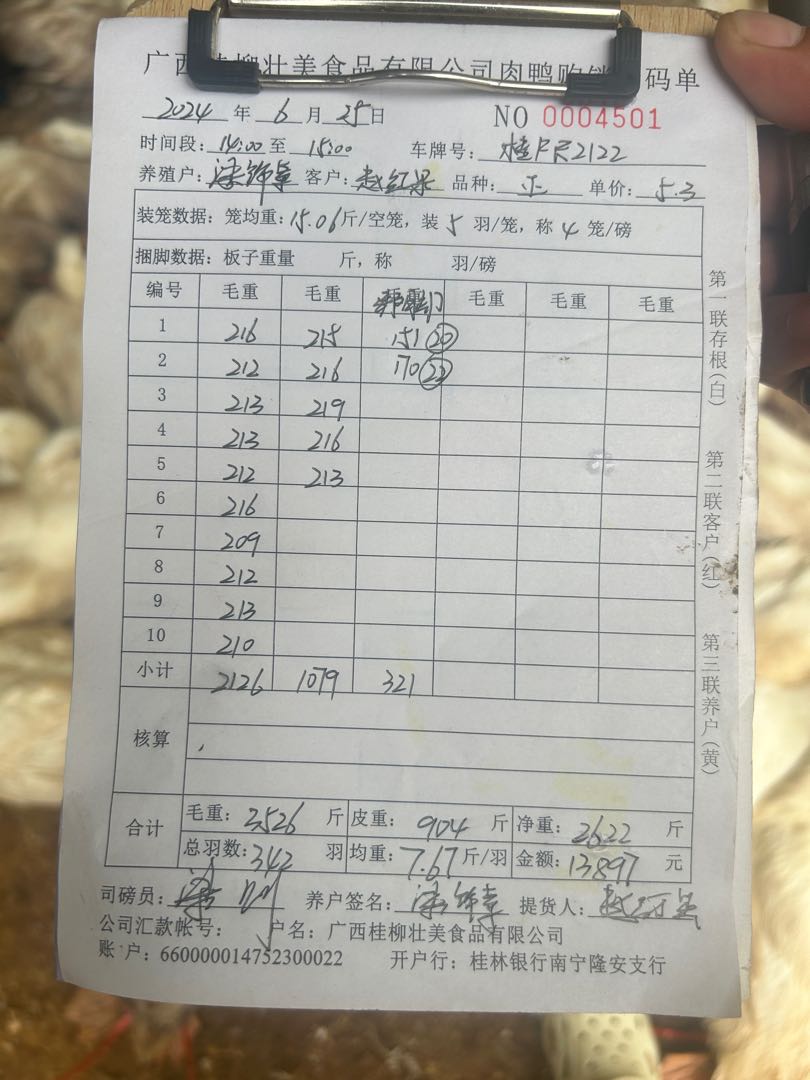 广西桂柳壮美食品有限公司肉鸭购销 码单
2024 年 6 月 25 日 NO 0004501
时间段: 14:00 至 15:00 车牌号: 2122
养殖户: 客户: 赵红 品种: 正 单价: 5.3
装笼数据: 笼均重: 15.06 斤/空笼, 装 5 羽/笼, 称 4 笼/磅
捆脚数据: 板子重量 斤, 称 羽/磅
编号 毛重 毛重 毛重 毛重 毛重
1 216 215 151 20
2 212 216 170 22
3 213 219
4 213 216
5 212 213
6 216
7 209
8 212
9 213
10 210
小计 2126 1079 321
核算
合计 毛重: 3526 斤 皮重: 904 斤 净重: 2622 斤
总羽数: 342 羽 均重: 7.67 斤/羽 金额: 13897 元
司磅员: 养户签名: 提货人:
公司汇款帐号: 户名: 广西桂柳壮美食品有限公司
账 户: 660000014752300022 开户行: 桂林银行南宁隆安支行
第一联存根(白)
第二联客户(红)
第三联养户(黄)